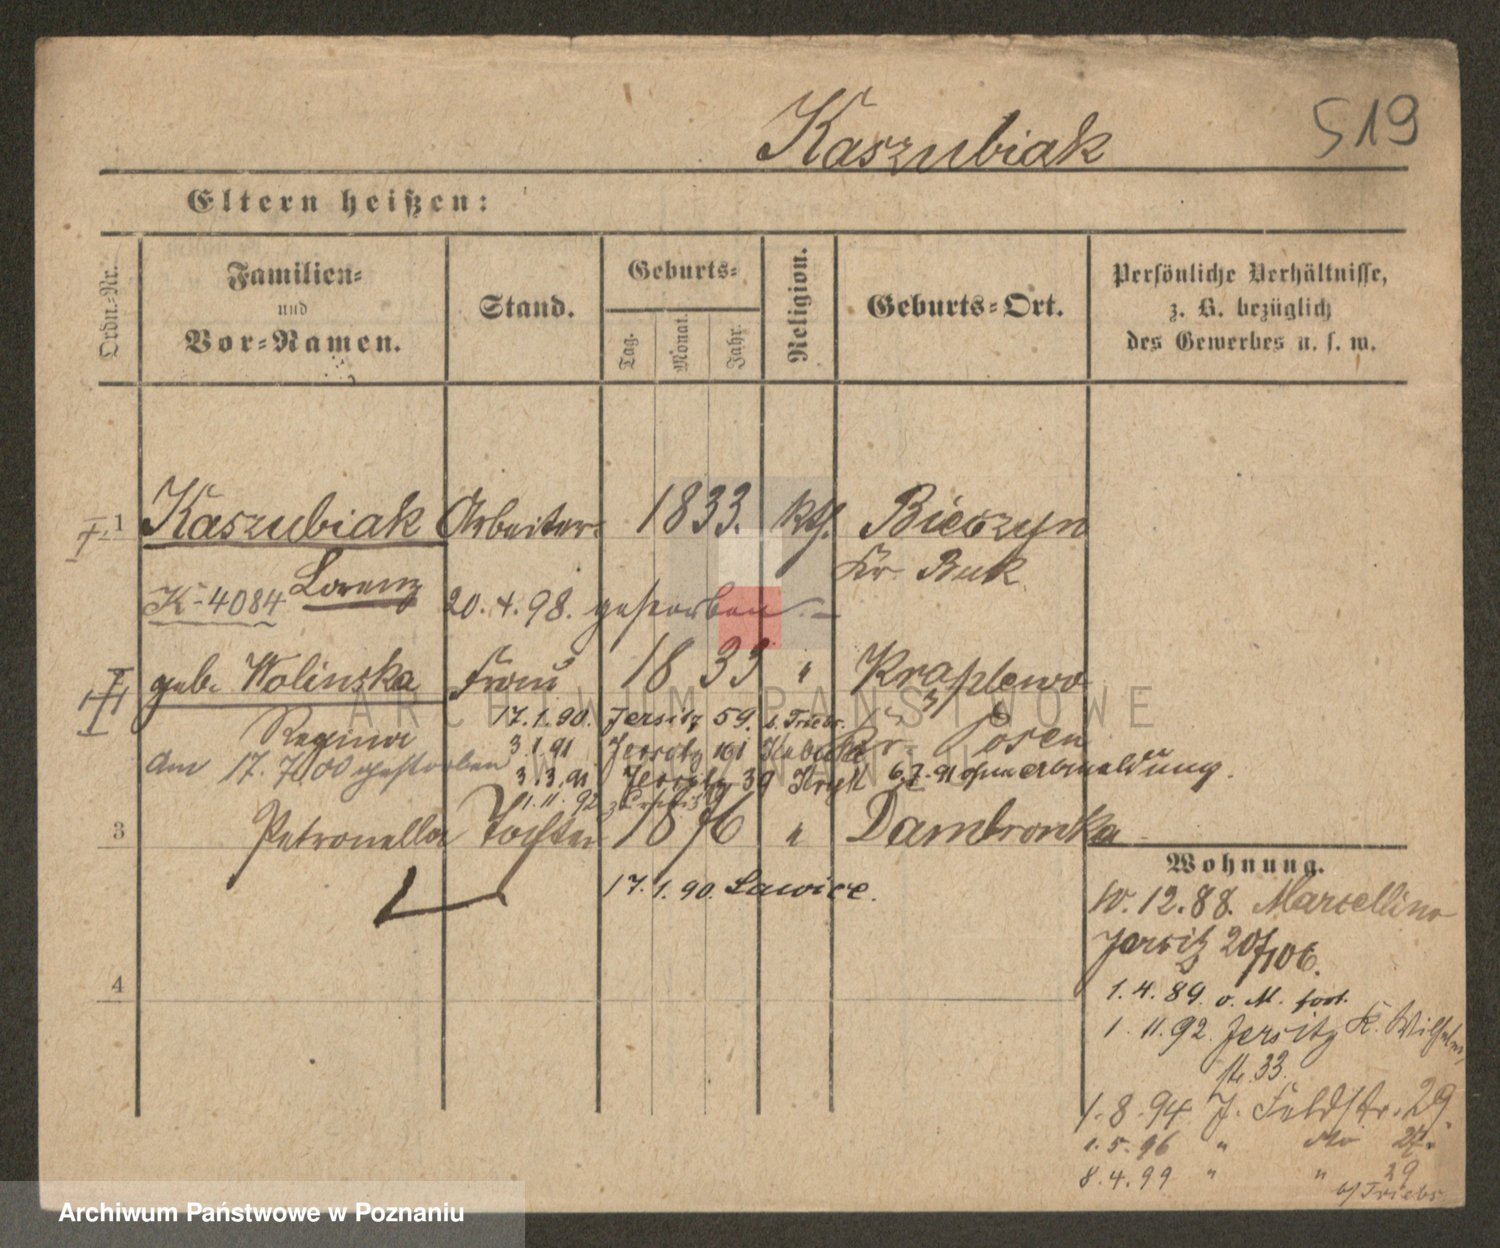 519
Kaszubiak
Eltern heißen:
Ordn.-Nr.
Familien-
und
Vor-Namen.
Stand.
Geburts-
Tag.
Monat.
Jahr.
Religion.
Geburts-Ort.
Persönliche Verhältnisse,
z. B. bezüglich
des Gewerbes u. s. w.
1 Kaszubiak Arbeiter 1833. kth. Bieczyn
Lorenz Kr. Buk
K-4084 20. 4. 98. gestorben
geb. Wolinska Frau 1833 " Kraplewo
Regina 17. 1. 90. Jersitz 59. b. Triebs. Kr. Posen
3. 1. 91 Jersitz
am 17. 7 00 gestorben 3. 3. 91 Jersitz 39 6. 7. 91 ohne Abmeldung.
1. 11. 92
3 Petronella Tochter 1876 " Dambrowka
17. 1. 90. Lawice.
4
Wohnung.
12. 88. Marcellino
Jersitz 207/106.
1. 4. 89. v. M. fort.
1. 11. 92. Jersitz K. Wilhelm
str. 33.
1. 8. 94. J. Feldstr. 29.
1. 5. 96 " dto 27.
8. 4. 99 " " 29
b/ Triebs
ARCHIWUM PAŃSTWOWE
W POZNANIU
Archiwum Państwowe w Poznaniu